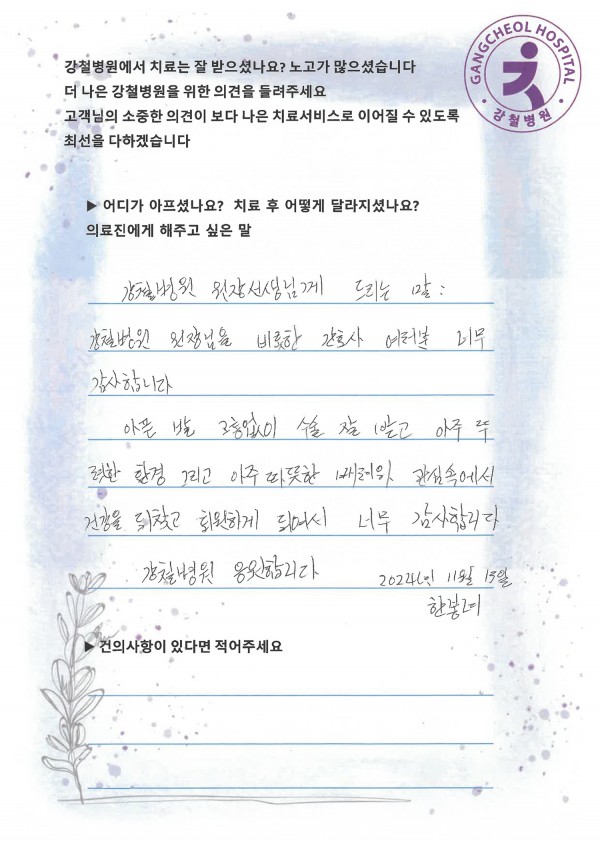 GANGCHEOL HOSPITAL
강철병원
강철병원에서 치료는 잘 받으셨나요? 노고가 많으셨습니다
더 나은 강철병원을 위한 의견을 들려주세요
고객님의 소중한 의견이 보다 나은 치료서비스로 이어질 수 있도록
최선을 다하겠습니다
▶ 어디가 아프셨나요? 치료 후 어떻게 달라지셨나요?
의료진에게 해주고 싶은 말
강철병원 원장선생님께 드리는 말:
강철병원 원장님을 비롯한 간호사 여러분 너무
감사합니다
아픈 발 고통없이 수술 잘 받고 아주
한 환경 그리고 아주 따뜻한 배려와 관심속에서
건강을 되찾고 퇴원하게 되여서 너무 감사합니다
강철병원 응원합니다
2024년 11월 13일
▶ 건의사항이 있다면 적어주세요